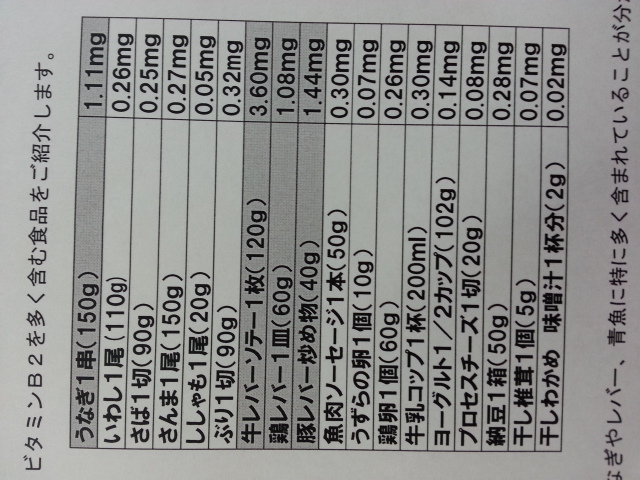 ビタミンB2を多く含む食品をご紹介します。
うなぎ1串(150g) 1.11mg
いわし1尾(110g) 0.26mg
さば1切(90g) 0.25mg
さんま1尾(150g) 0.27mg
ししゃも1尾(20g) 0.05mg
ぶり1切(90g) 0.32mg
牛レバーソテー1枚(120g) 3.60mg
鶏レバー1皿(60g) 1.08mg
豚レバー炒め物(40g) 1.44mg
魚肉ソーセージ1本(50g) 0.30mg
うずらの卵1個(10g) 0.07mg
鶏卵1個(60g) 0.26mg
牛乳コップ1杯(200ml) 0.30mg
ヨーグルト1/2カップ(102g) 0.14mg
プロセスチーズ1切(20g) 0.08mg
納豆1箱(50g) 0.28mg
干し椎茸1個(5g) 0.07mg
干しわかめ 味噌汁1杯分(2g) 0.02mg
なぎやレバー、青魚に特に多く含まれていることが分